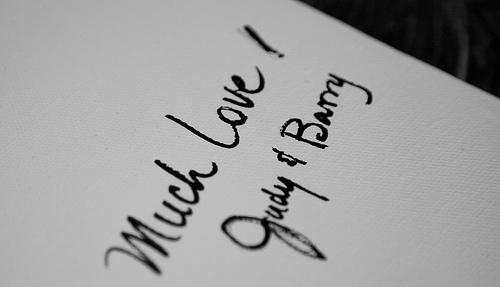 Much Love!
Judy & Barry